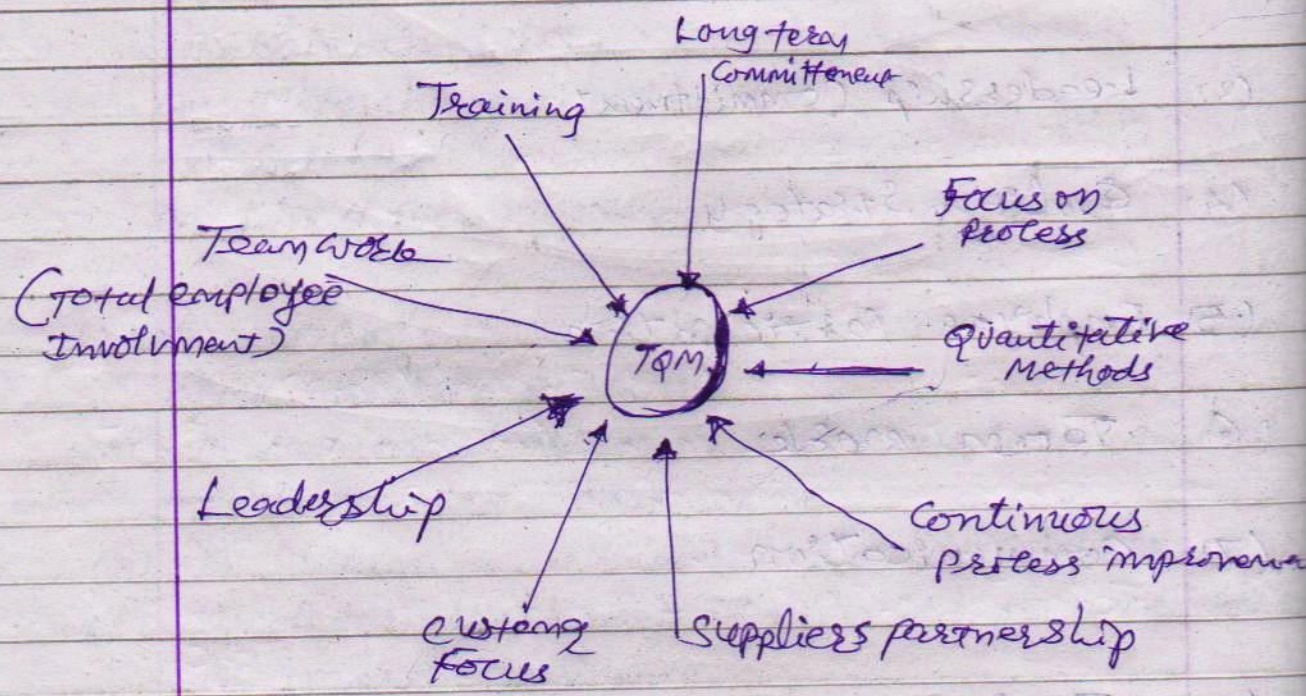 Long term
Committeneut
Training
Focus on
Process
Teamwork
(Total employee
Involvment)
TQM
Quantitative
Methods
Leadership
Continuous
Process improvem
Custome
Focus
Suppliers partnership